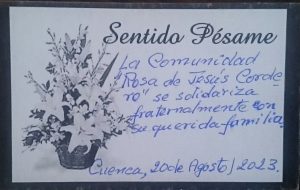 Sentido Pésame
La Comunidad
"Rosa de Jesús Corde-
ro" se solidariza
fraternalmente con
su querida familia.
Cuenca, 20 de Agosto/2023.